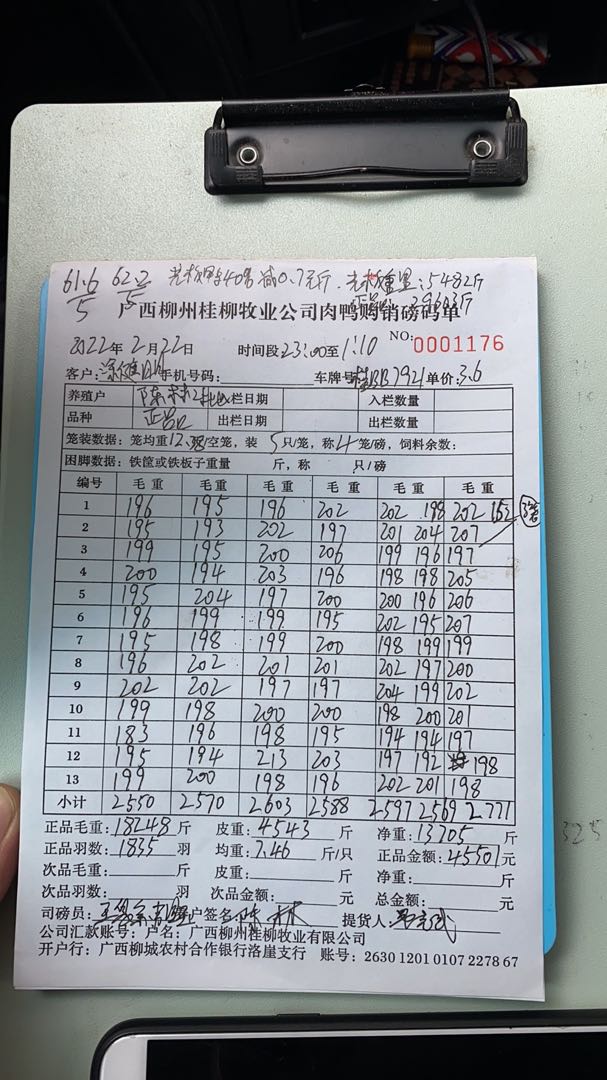 61.6/5 62.2/5
:5482斤
广西柳州桂柳牧业公司肉鸭购销磅码单
2022年2月22日 时间段23:00至1:10 NO:0001176
客户: 手机号码: 车牌号 BB7921 单价:3.6
养殖户 陈林 出栏日期 入栏数量
品种 正品 出栏日期 出栏数量
笼装数据:笼均重12.38/空笼,装5只/笼,称4笼/磅,饲料余数:
困脚数据:铁筐或铁板子重量 斤,称 只/磅
编号 毛重 毛重 毛重 毛重 毛重 毛重
1 196 195 196 202 202 198 202 152 3笼
2 195 193 202 197 201 204 207
3 199 195 200 206 199 196 197
4 200 194 203 196 198 198 205
5 195 204 197 200 200 196 206
6 196 199 199 195 202 195 207
7 195 198 199 200 198 199 199
8 196 202 201 201 202 197 200
9 202 202 197 197 204 199 202
10 199 198 200 200 198 200 201
11 183 196 198 195 194 194 197
12 195 194 213 203 197 192 198
13 199 200 198 196 202 201 198
小计 2550 2570 2603 2588 2597 2569 2771
正品毛重:18248斤 皮重:4543斤 净重:13705斤
正品羽数:1835羽 均重:7.46斤/只 正品金额:45501元
次品毛重:斤 皮重:斤 净重:斤
次品羽数:羽 次品金额:元 总金额:元
司磅员: 户签名 陈林 提货人:
公司汇款账号:户名:广西柳州桂柳牧业有限公司
开户行:广西柳城农村合作银行洛崖支行 账号:2630 1201 0107 2278 67